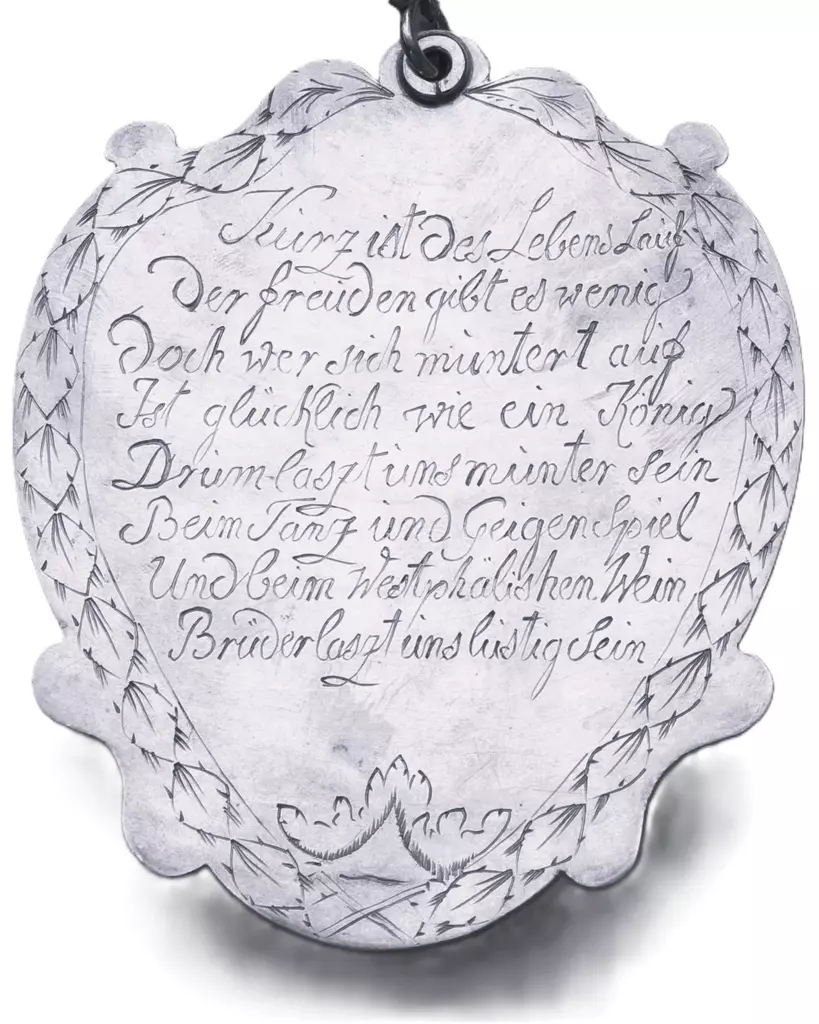 Kurz ist des Lebens Lauf
Der freuden gibt es wenig
Doch wer sich muntert auf
Ist glücklich wie ein König
Drum laszt uns munter sein
Beim Tanz und Geigen Spiel
Und beim Westphälishen Wein
Brüder laszt uns lustig sein